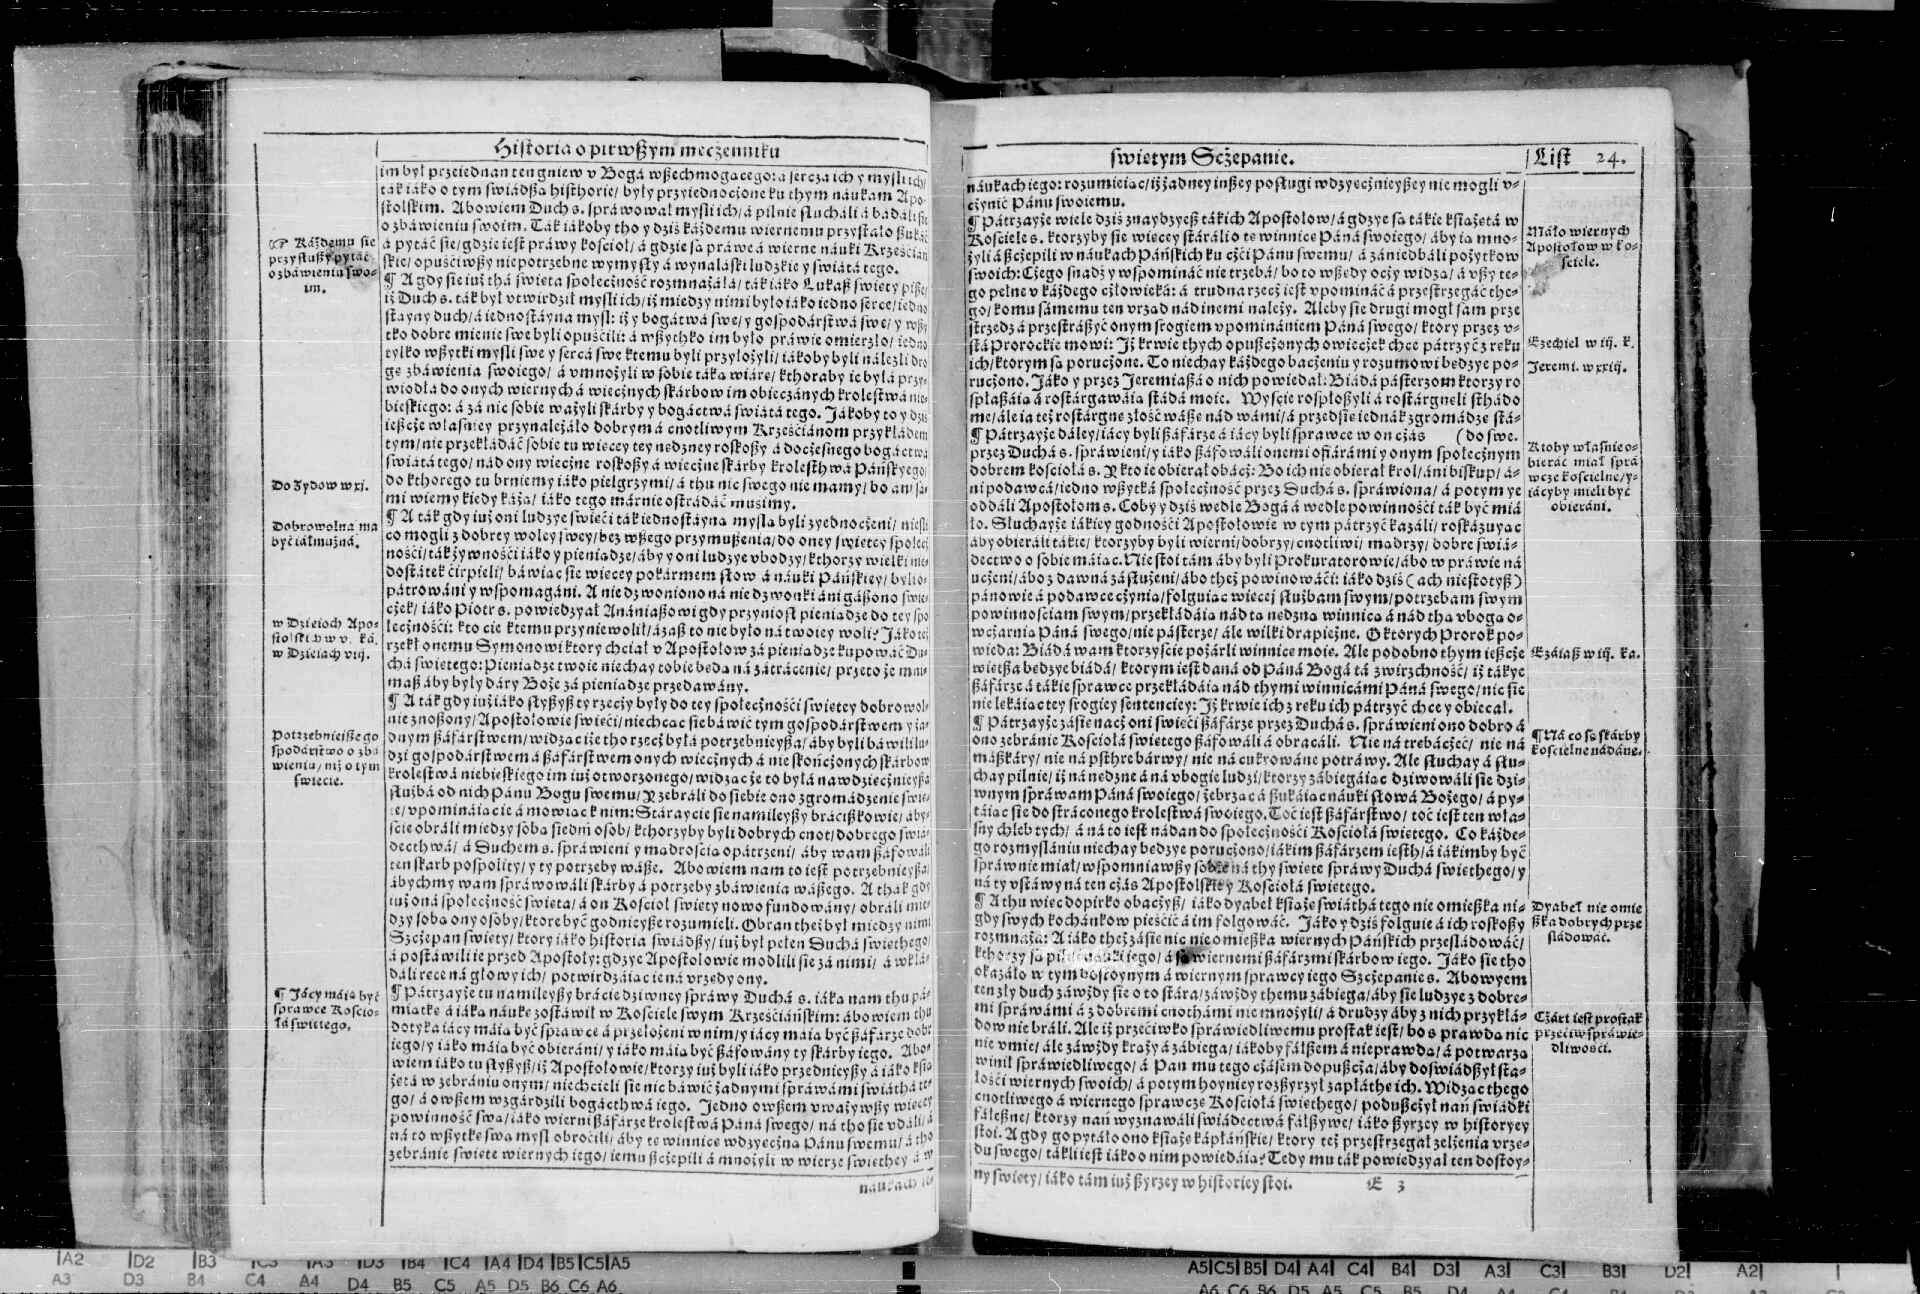 Historia o pirwßym męcżenniku
im był przeiednan ten gniew v Bogá wßechmogącego: á sercá ich y myśli ich/
ták iáko o tym świádßa histhorie/ były przyiednocżone ku thym náukam Apo-
stolskim. Abowiem Duch s. spráwował myśli ich/ á pilnie słucháli á bádáli się
o zbáwieniu swoim. Ták iákoby tho y dziś káżdemu wiernemu przystało ßukáć
á pytáć się/ gdzie iest práwy kościoł/ á gdzie są práwe á wierne náuki Krześćiáń
skie/ opuśćiwßy niepotrzebne wymysły á wynaláski ludzkie y świátá tego.
¶ A gdy się iuż thá święta społecżność rozmnażáłá/ ták iáko Lukaß święty piße/
iż Duch s. ták był vtwirdził myśli ich/ iż miedzy nimi było iáko iedno serce/ iedno
stáyny duch/ á iednostáyna myśl: iż y bogáctwá swe/ y gospodárstwá swe/ y wßy
tko dobre mienie swe byli opuśćili: á wßythko im było práwie omierzło/ iedno
tylko wßytki myśli swe y sercá swe ktemu byli przyłożyli/ iákoby byli náleźli dro
gę zbáwienia swoiego/ á vmnożyli w sobie táką wiárę/ kthoraby ie byłá przy-
wiodłá do onych wiernych á wiecżnych skárbow im obiecánych krolestwá nie-
bieskiego: á zá nic sobie ważyli skárby y bogáctwá świátá tego. Jákoby to y dziś
ießcże własniey przynależáło dobrym á cnotliwym Krześćiánom przykłádem
tym/ nie przekłádáć sobie tu więcey tey nędzney roskoßy á docżesnego bogáctwá
świátá tego/ nád ony wiecżne roskoßy á wiecżne skárby krolesthwá Páńskyego/
do kthorego tu brniemy iáko pielgrzymi/ á thu nic swego nie mamy/ bo áni sá-
mi wiemy kiedy każą/ iáko tego márnie ostrádáć musimy.
¶ A ták gdy iuż oni ludzye święći ták iednostáyną myślą byli zyednocżeni/ nieśli
co mogli z dobrey woley swey/ bez wßego przymußenia/ do oney świętey społecż
nośći/ ták żywnośći iáko y pieniądze/ áby y oni ludzye vbodzy/ kthorzy wielki nie-
dostátek ćirpieli/ báwiąc się więcey pokármem słow á náuki Páńskiey/ byli o-
pátrowáni y wspomagáni. A nie dzwoniono ná nie dzwonki áni gáßono świe-
cżek/ iáko Piotr s. powiedzyał Anániaßowi gdy przyniosł pieniądze do tey spo
łecżnośći: kto cię ktemu przyniewolił/ ázaß to nie było ná twoiey woli? Jáko też
rzekł onemu Symonowi ktory chćiał v Apostołow zá pieniądze kupowáć Du-
chá świętego: Pieniądze twoie niechay tobie będą ná zátrácenie/ przeto że mni-
maß áby były dáry Boże zá pieniądze przedawány.
¶ A ták gdy iuż iáko słyßyß ty rzecży były do tey społecżnośći świętey dobrowol-
nie znoßony/ Apostołowie święći/ niechcąc się báwić tym gospodárstwem y ia-
dnym ßáfárstwem/ widząc iże tho rzecż była potrzebnieyßa/ áby byli báwili lu-
dzi gospodárstwem á ßáfárstwem onych wiecżnych á nieskończonych skárbow
krolestwá niebieskiego im iuż otworzonego/ widząc że to byłá nawdzięcżnieyßa
służbá od nich Pánu Bogu swemu/ Y zebráli do siebie ono zgromádzenie świę-
te/ vpomináiąc ie á mowiąc k nim: Stáraycie się namileyßy bráćißkowie/ aby-
śćie obráli miedzy sobą siedm osob/ kthorzyby byli dobrych cnot/ dobrego świá-
decthwá/ á Duchem s. spráwieni y mądrośćią opátrzeni/ áby wam ßáfowáli
ten skarb pospolity/ y ty potrzeby wáße. Abowiem nam to iest potrzebnieyßa/
ábychmy wam spráwowáli skárby á potrzeby zbáwienia wáßego. A thak gdy
iuż oná społecżność święta/ á on Kośćioł święty nowo fundowány/ obráli mie-
dzy sobą ony osoby/ ktore być godnieyße rozumieli. Obran theż był miedzy nimi
Szcżepan święty/ ktory iáko historia świádßy/ iuż był pełen Duchá świethego/
á postáwili ie przed Apostoły: gdzye Apostołowie modlili się zá nimi/ á wkłá-
dáli ręce ná głowy ich/ potwirdzáiąc ie ná vrzędy ony.
¶ Pátrzayże tu namileyßy brácie dziwney spráwy Duchá s. iáka nam thu pá-
miątkę á iáką náukę zostáwił w Kośćiele swym Krześćiáńskim: ábowiem thu
dotyka iácy máią być spráwce á przełożeni w nim/ y iácy máią być ßáfárze dobr
iego/ y iáko máią być obieráni/ y iáko máią być ßáfowány ty skárby iego. Abo-
wiem iáko tu słyßyß/ iż Apostołowie/ ktorzy iuż byli iáko przednieyßy á iáko ksią
żętá w zebrániu onym/ niechcieli się nic báwić żadnymi spráwámi świáthá te-
go/ á owßem wzgárdzili bogácthwá iego. Jedno owßem vważywßy więcey
powinność swą/ iáko wierni ßáfárze krolestwá Páná swego/ ná tho się vdáli/ á
ná to wßytkę swą myśl obroćili/ áby tę winnicę wdzyecżną Pánu swemu/ á tho
zebránie święte wiernych iego/ iemu ßcżepili á mnożyli w wierze świethey á w
náukach ie-
☞ Káżdemu się
przysłußy pytáć
o zbáwieniu swo-
im.
Do Żydow w xj.
Dobrowolna ma
być iáłmużná.
w Dzieioch Apo-
stolskich w v. ká.
w Dzieiach viij.
Potrzebnieiße go
spodárstwo o zbá
wieniu/ niż o tym
świecie.
¶ Jácy máią być
sprawce Kościo-
łá świętego.
świętym Scżepanie.
List 24.
náukach iego: rozumieiąc/ iż żadney inßey posługi wdzyęcżnieyßey nie mogli v-
cżynić Pánu swoiemu.
¶ Pátrzayże wiele dziś znaydzyeß tákich Apostołow/ á gdzye są tákie książętá w
Kośćiele s. ktorzyby się więcey stáráli o tę winnicę Páná swoiego/ áby ią mno-
żyli á ßcżepili w náukach Páńskich ku cżći Pánu swemu/ á zániedbáli pożytkow
swoich: Cżego snadź y wspomináć nie trzebá/ bo to wßędy ocży widzą/ á vßy te-
go pełne v káżdego cżłowieká: á trudna rzecż iest vpomináć á przestrzegáć the-
go/ komu sámemu ten vrząd nád inemi należy. Aleby się drugi mogł sam prze
strzedz á przestráßyć onym srogiem vpominániem Páná swego/ ktory przez v-
stá Prorockie mowi: Iż krwie thych opußcżonych owiecżek chce pátrzyć z ręku
ich/ ktorym są porucżone. To niechay káżdego bacżeniu y rozumowi będzye po-
rucżono. Jáko y przez Jeremiaßá o nich powiedał: Biádá pásterzom ktorzy ro
spłaßáią á rostárgawáią stádá moie. Wyśćie rospłoßyli á rostárgnęli sthádo
me/ ále ia też rostárgnę złość wáßę nád wámi/ á przedsię iednák zgromádzę stá-
¶ Pátrzayże dáley/ iácy byli ßáfárze á iácy byli spráwce w on cżás (do swe.
przez Duchá s. spráwieni/ y iáko ßáfowáli onemi ofiárámi y onym społecżnym
dobrem kośćiołá s. Y kto ie obierał obacż: Bo ich nie obierał krol/ áni biskup/ á-
ni podawcá/ iedno wßytká społecżność przez Duchá s. spráwiona/ á potym ye
oddáli Apostołom s. Coby y dziś wedle Bogá á wedle powinnośći ták być miá
ło. Słuchayże iákiey godnośći Apostołowie w tym pátrzyć kazáli/ roskázuyąc
áby obieráli tákie/ ktorzyby byli wierni/ dobrzy/ cnotliwi/ mądrzy/ dobre świá-
dectwo o sobie máiąc. Nie stoi tám áby byli Prokuratorowie/ ábo w práwie ná
ucżeni/ ábo z dawná zásłużeni/ ábo theż powinowáći: iáko dziś (ach niestotyß)
pánowie á podawce cżynią/ folguiąc więcej służbam swym/ potrzebam swym
powinnośćiam swym/ przekłádáią nád tá nędzną winnicą á nád thą vbogą o-
wcżárnią Páná swego/ nie pásterze/ ále wilki drapieżne. O ktorych Prorok po-
wiedá: Biádá wam ktorzyśćie pożárli winnicę moię. Ale podobno thym ießcże
więtßa będzye biádá/ ktorym iest dána od Páná Bogá tá zwirzchność/ iż tákye
ßáfárze á tákie spráwce przekłádáią nád thymi winnicámi Páná swego/ nic się
nie lękáiąc tey srogiey sentenciey: Iż krwie ich z ręku ich pátrzyć chce y obiecał.
¶ Pátrzayże zásię nacż oni święći ßáfárze przez Duchá s. spráwieni ono dobro á
ono zebránie Kośćiołá świętego ßáfowáli á obrácáli. Nie ná trębácże/ nie ná
máßkáry/ nie ná psthre bárwy/ nie ná cukrowáne potráwy. Ale słuchay á słu-
chay pilnie/ iż ná nędzne á ná vbogie ludzi/ ktorzy zábiegáiąc dziwowáli się dzi-
wnym spráwam Páná swoiego/ żebrząc á ßukáiąc náuki słowá Bożego/ á py-
táiąc się do stráconego krolestwá swoiego. Toć iest ßáfárstwo/ toć iest ten wła-
sny chleb tych/ á ná to iest nádan do społecżnośći Kośćiołá świętego. Co káżde-
go rozmyslániu niechay będzye porucżono/ iákim ßáfárzem iesth/ á iákimby być
spráwnie miał/ wspomniawßy sobie ná thy święte spráwy Duchá świethego/ y
ná ty vstáwy ná ten cżás Apostolskie y Kośćiołá świętego.
¶ A thu więc dopirko obacżyß/ iáko dyabeł książę świáthá tego nie omießka ni-
gdy swych kochánkow pieśćić á im folgowáć. Jáko y dziś folguie á ich roskoßy
rozmnaża: A iáko theż zásię nic nie omießka wiernych Páńskich prześládowáć/
kthorzy są pilni náuki iego/ á są wiernemi ßáfárzmi skárbow iego. Jáko się tho
okazáło w tym dostoynym á wiernym spráwcy iego Szcżepanie s. Abowyem
ten zły duch záwżdy się o to stára/ záwżdy themu zábiega/ áby się ludzye z dobre-
mi spráwámi á z dobremi cnothámi nie mnożyli/ á drudzy áby z nich przykłá-
dow nie bráli. Ale iż przećiwko spráwiedliwemu prostak iest/ bo s prawdą nic
nie vmie/ ále záwżdy krąży á zábiega/ iákoby fałßem á nieprawdą/ á potwarzą
winił spráwiedliwego/ á Pan mu tego cżásem dopußcża/ áby doświádßył stá-
łośći wiernych swoich/ á potym hoyniey rozßyrzył zapłáthę ich. Widząc thego
cnotliwego á wiernego spráwcę Kośćiołá świethego/ podußcżył nań świadki
fáleßne/ ktorzy nań wyznawáli świádectwá fałßywe/ iáko ßyrzey w historyey
stoi. A gdy go pytáło ono książę kápłáńskie/ ktory też przestrzegał zelżenia vrzę-
du swego/ tákli iest iáko o nim powiedáią? Tedy mu ták powiedzyał ten dostoy-
ny święty/ iáko tám iuż ßyrzey w historiey stoi.
E 3
Máło wiernych
Apostołow w ko-
ściele.
Ezechiel w iij. k.
Jeremi. w xxiij.
Ktoby własnie o-
bierać miał sprá
wcze kościelne/ y-
iácyby mieli być
obieráni.
Ezáiaß w iij. ká.
¶ Ná co są skárby
kościelne nádáne.
Dyabeł nie omie
ßka dobrych prze
śládowáć.
Cżárt iest prostak
przeciw spráwie-
dliwości.